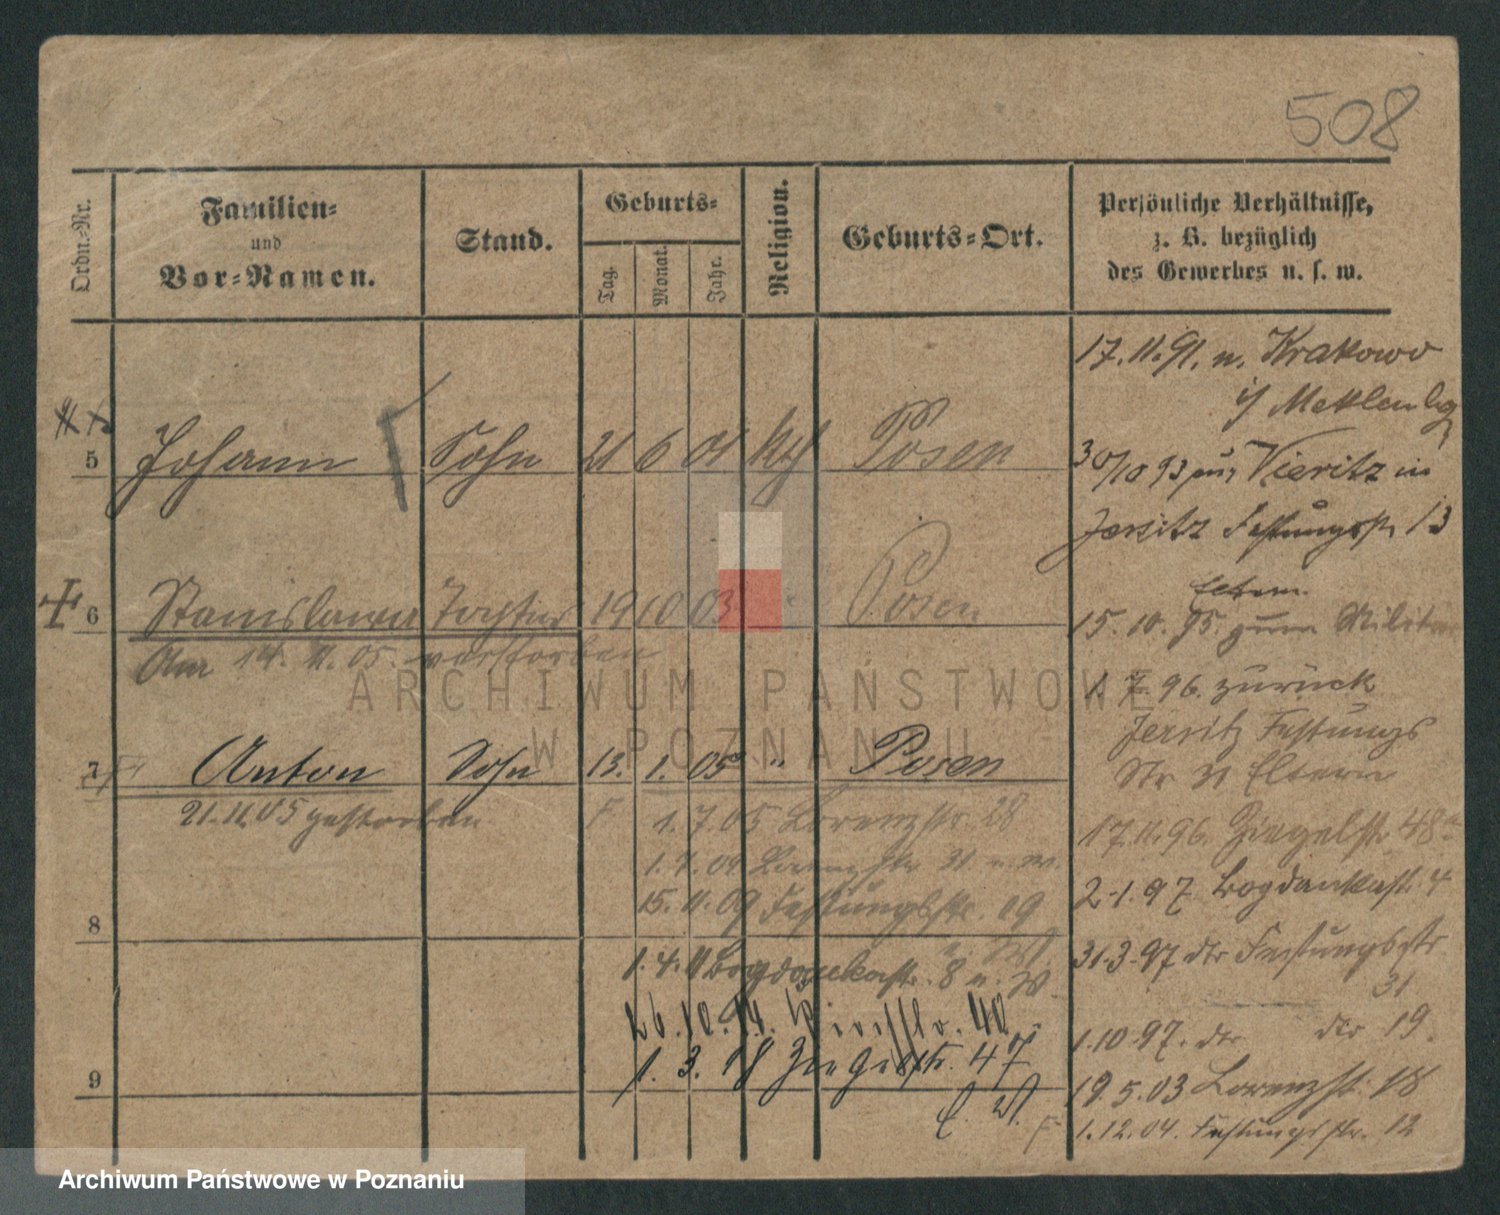 508
Ordn.-Nr.
Familien-
und
Vor-Namen.
Stand.
Geburts-
Tag.
Monat.
Jahr.
Religion.
Geburts-Ort.
Persönliche Verhältnisse,
z. B. bezüglich
des Gewerbes u. s. w.
5 Johann Sohn 21 6 01 kth Posen
6 Stanislawa Tochter 19 10 03 Posen
Am 14. 11. 05. verstorben
7 Anton Sohn 13. 1. 05 " Posen
21.11.05 gestorben
F 1. 7. 05 Lorenzstr. 28
Lorenzstr. 31 u. W.
15. 11. 09 Festungsstr. 19
u. W.
8
1. 4. 11 Bogdankastr. 8 u. W.
26. 10. 14. 40
1. 3. 18 Ziegelstr. 47
9
W.
17. 11. 91. n. Krakow
i/ Meklenbg
30/10 93 Vieritz in
Jersitz Festungsstr 13
Eltern
15. 10. 95. zum Militär
1. 7. 96. zurück
Jersitz Festungs
Str 31 Eltern
17. 11. 96. Ziegelstr 48
2.1.97 Bogdankastr. 4
31.3.97 dto Festungsstr
31
1.10.97. dto dto 19.
19. 5. 03 Lorenzstr. 18
F 1. 12. 04. Festungsstr. 12
ARCHIWUM PAŃSTWOWE
W POZNANIU
Archiwum Państwowe w Poznaniu